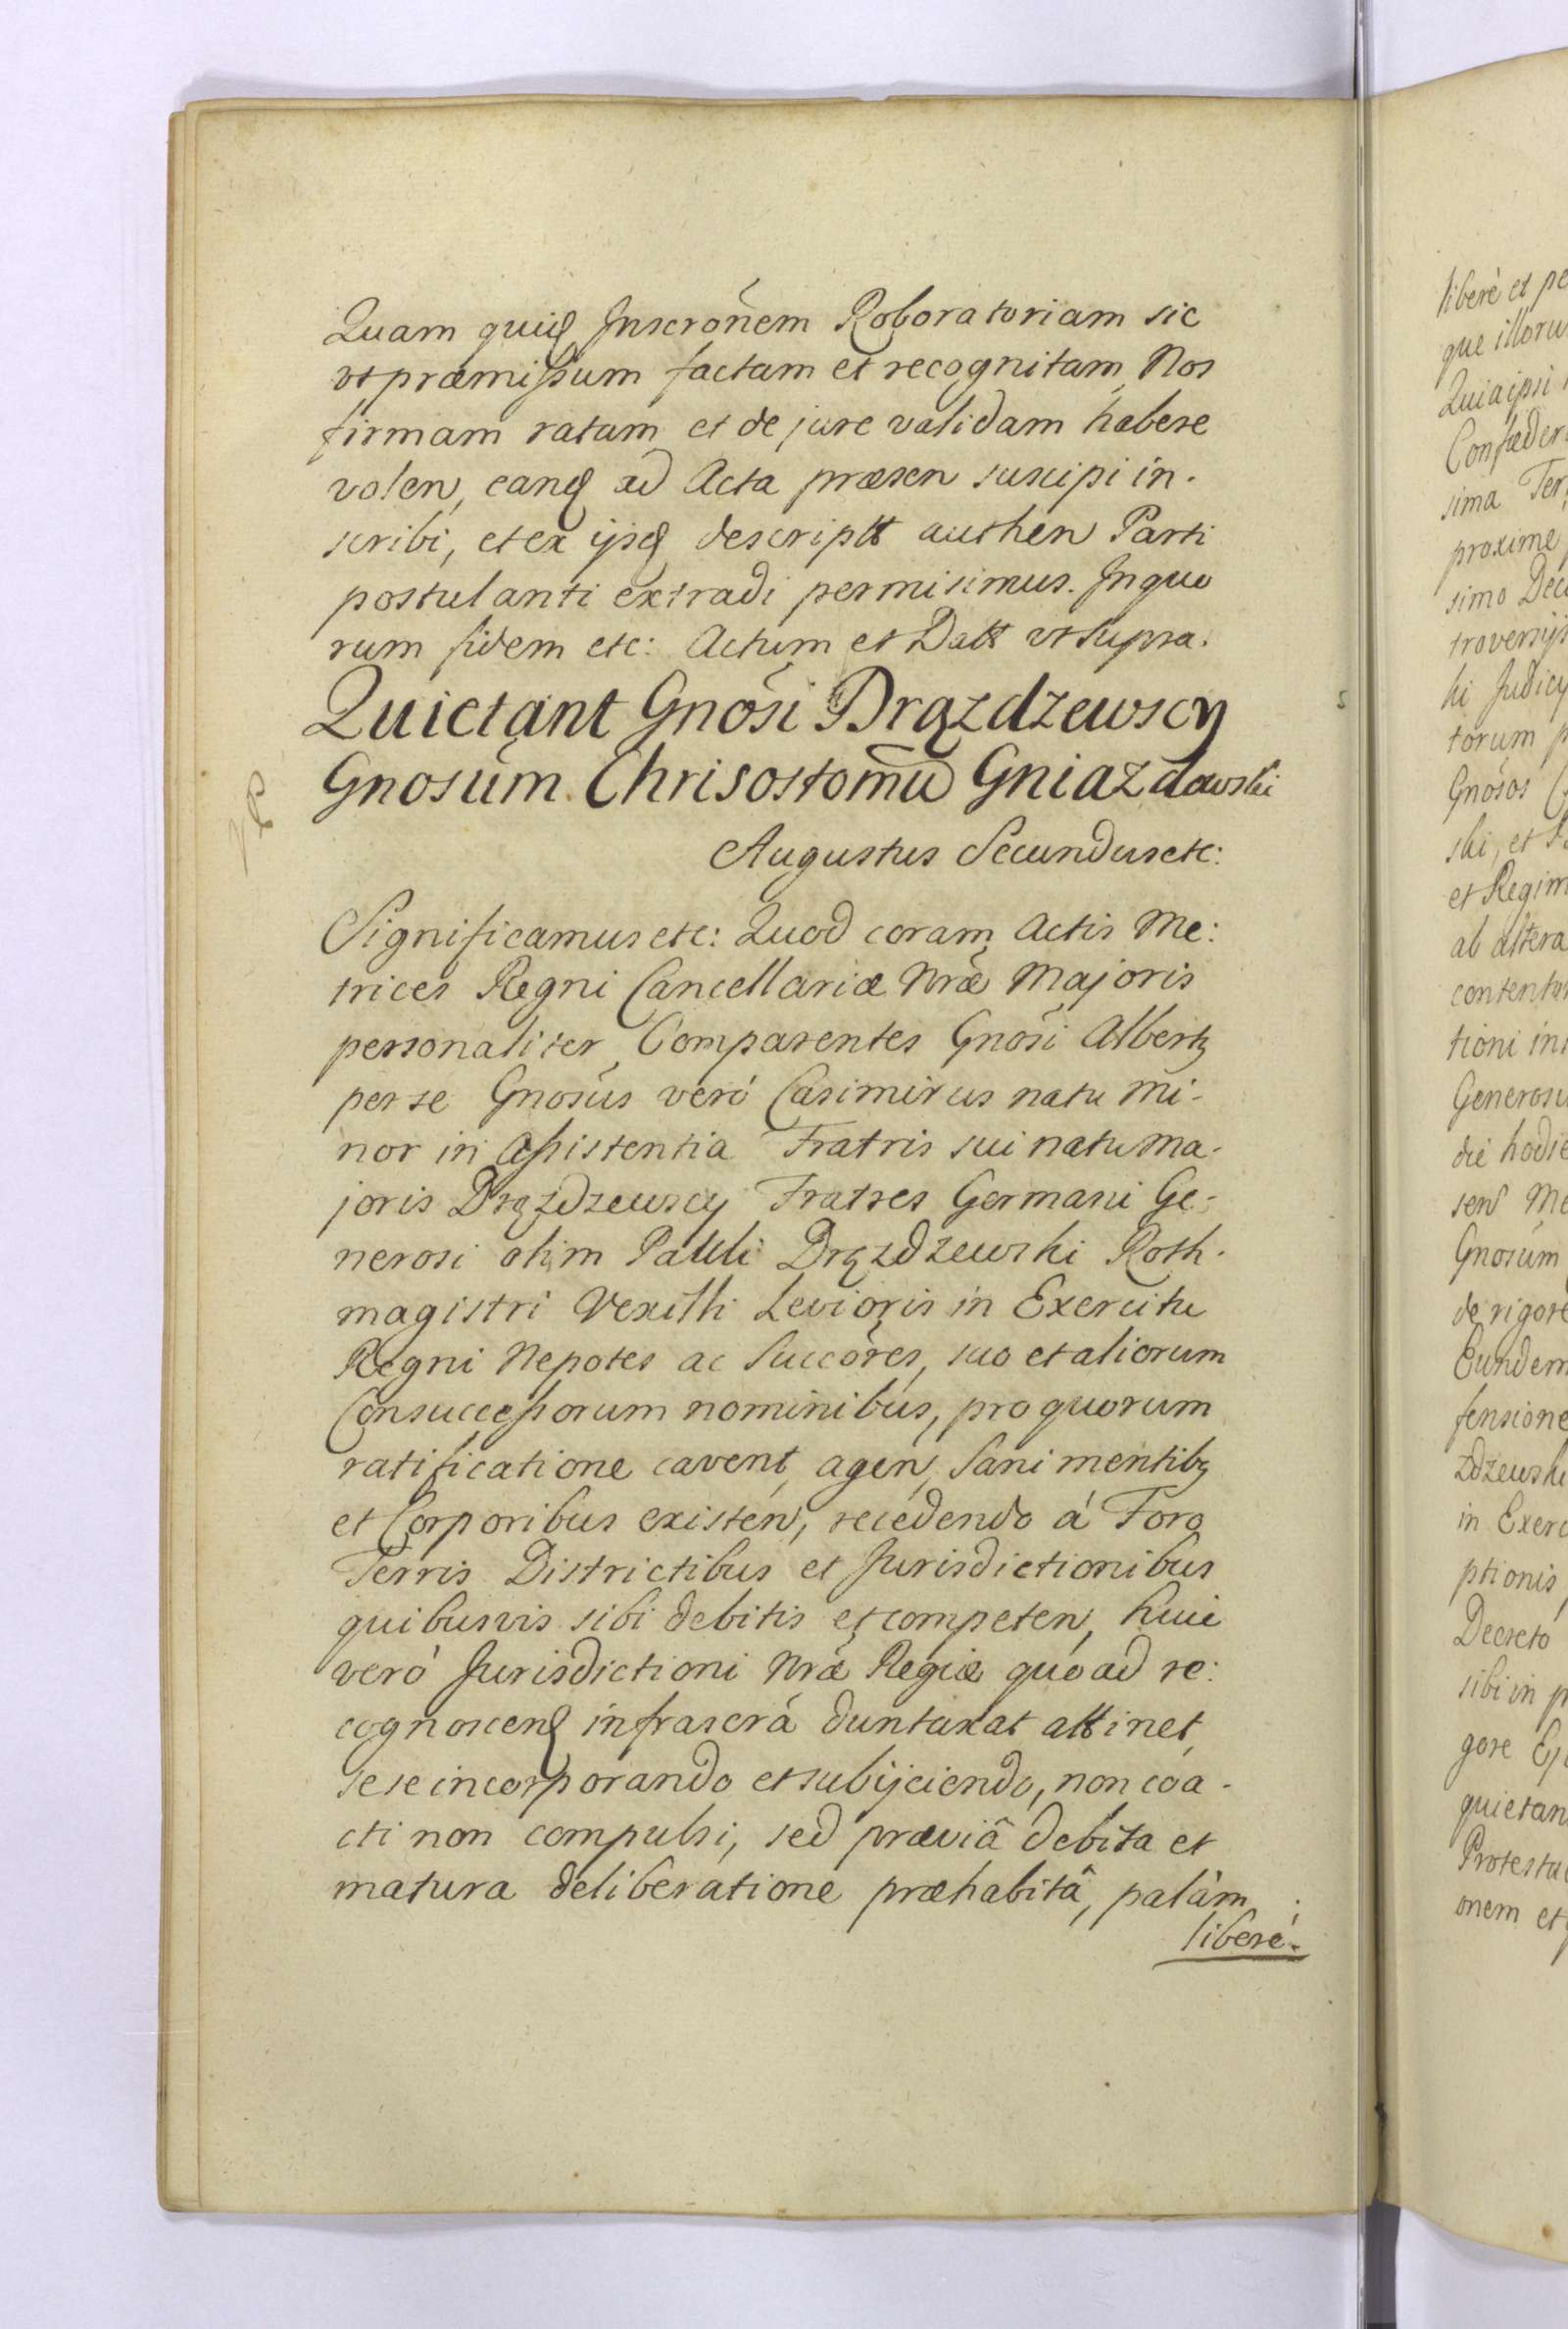 Quam quidꝗ Inscrõnem Roboratoriam sic
vt præmissum factam et recognitam, Nos
firmam ratam et de jure validam habere
volen, eanꝗ ad Acta præsen suscipi in-
scribi, et ex ijsꝗ descriptt authen Parti
postulanti extradi permisimus. In quo
rum fidem etc: Actum et Datt vt supra.
Quietant Gnõsi Drązdzewscy
Gnosũm Chrisostomũ Gniazdowski
Augustus Secundus etc:
Significamus etc: Quod coram Actis Me:
trices Regni Cancellariæ Nræ Majoris
personaliter Comparentes Gnõsi Albertꝫ
per se Gnosũs veró Casimirus natu mi-
nor in Assistentia Fratris sui natu ma-
joris Drązdzewscy Fratres Germani Ge-
nerosi olim Pauli Drązdzewski Roth-
magistri Vexilli Levioris in Exercitu
Regni Nepotes ac Succõres, suo et aliorum
Consuccessorum nominibus, pro quorum
ratificatione cavent, agen, Sani mentibꝫ
et Corporibus existen, recedendo á Foro
Terris Districtibus et Jurisdictionibus
quibusvis sibi debitis et competen, huic
veró Jurisdictioni Nræ Regiæ quo ad re:
cognoscenꝗ infrascrá duntaxat attinet,
sese incorporando et subijciendo, non coa-
cti non compulsi, sed præviâ debita et
matura deliberatione præhabitâ, palám
liberé.
liberè et pe
que illoru
Quia ipsi
Confæder
sima Ter
proxime
simo Dec
troversijs
hi Judicy
torum p
Gnõsos
ski, et
et Regim
ab altera
content
tioni in
Generosu
die hodie
sen Me
Gnosũm
de rigore
Eundem
fensione
zdzewski
in Exerc
ptionis
Decreto
sibi in p
gore Ej
quietan
Protesta
onem et